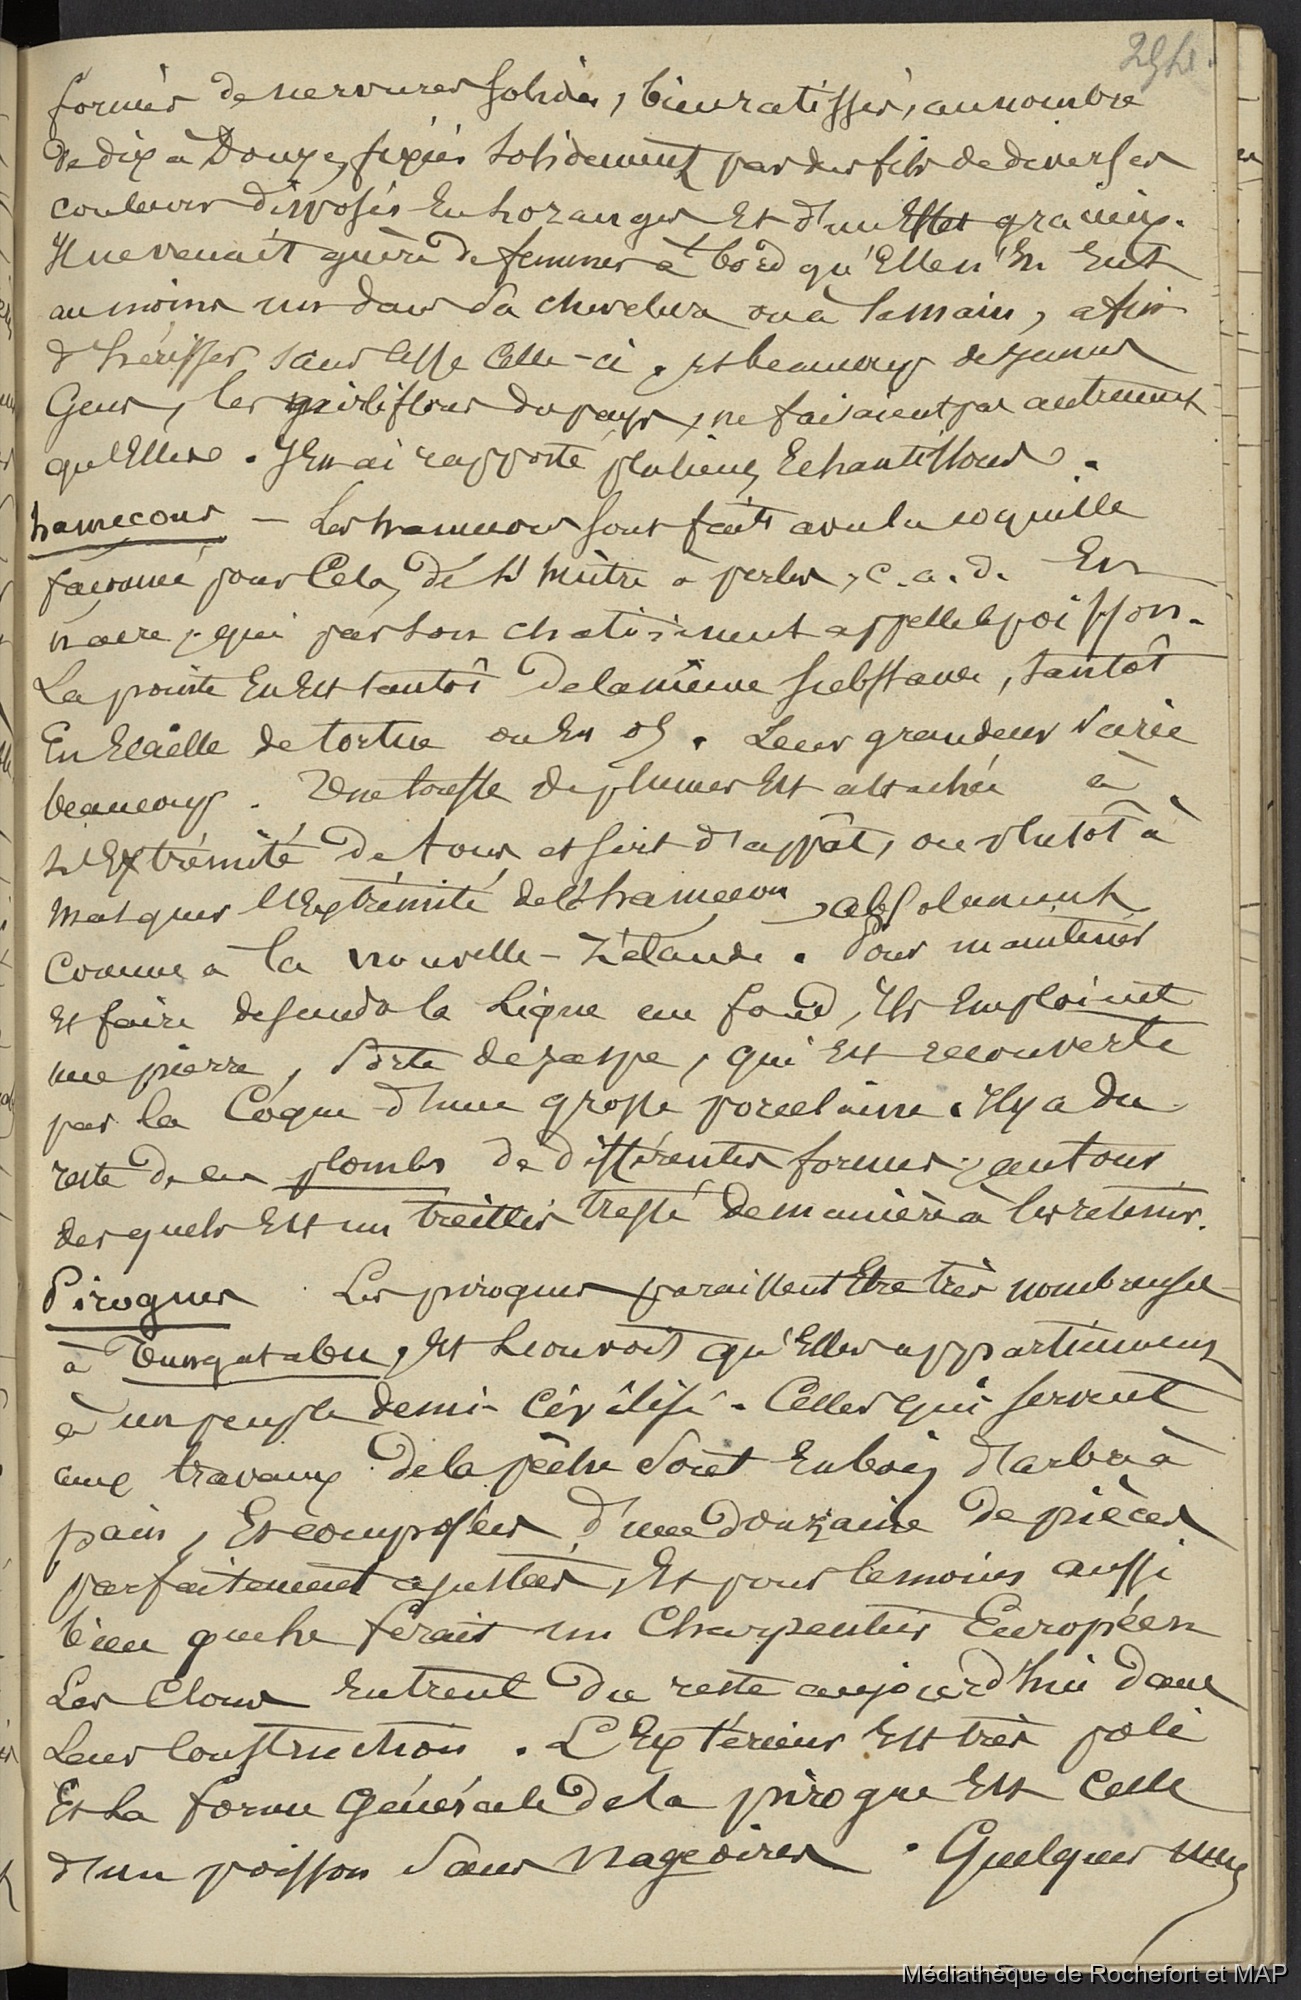 294.
formés de nervures solides, bien ratissés, au nombre
de dix à Douze, fixées solidement par des fils de diverses
couleurs disposés en lozanges et d'un Effet gracieux.
Il ne venait guère de femmes à bord qu'Elle n'En Eut
au moins un dans sa chevelure ou à la main, afin
d'hérisser sans cesse celle-ci. et beaucoup de jeunes
Gens, les du pays, ne faisaient pas autrement
qu'Elles. J'En ai rapporté plusieurs Echantillons.
hameçons – Les hameçons sont faits avec la coquille
façonnée pour Cela, de l'huître à perles, c. a. d. En
nacre, qui par son chatoiement appelle le poisson.
La pointe En Est tantôt de la même substance, tantôt
En Ecaille de tortue ou En os. Leur grandeur varie
beaucoup. Une touffe de plumes Est attachée à
L'Extrémité de tous et sert d'appât, ou plutôt à
masquer l'Extrémité de l'hameçon, absolument
comme à la nouvelle-Zélande. Pour maintenir
et faire descendre la Ligne au fond, Ils Emploient
une pierre, sorte de jaspe, qui Est recouverte
par la Coque d'une grosse porcelaine. Il y a du
reste de ces plombs de différentes formes, autour
desquels Est un treillis tressé de manière à les retenir.
Pirogues Les pirogues paraissent Etre très nombreuses
à Toungatabu, Et L'on voit qu'Elles appartiennent
à un peuple demi-Civilisé. Celles qui servent
aux travaux de la pêche sont En bois d'arbre à
pain, Et composées d'une douzaine de pièces
parfaitement ajustées, Et pour le moins aussi
bien que le ferait un Charpentier Européen
Les Clous Entrent du reste aujourd'hui dans
Leur Construction. L'Extérieur Est très poli
Et La forme Générale de la pirogue Est Celle
d'un poisson sans nageoires. Quelques unes
Médiathèque de Rochefort et MAP